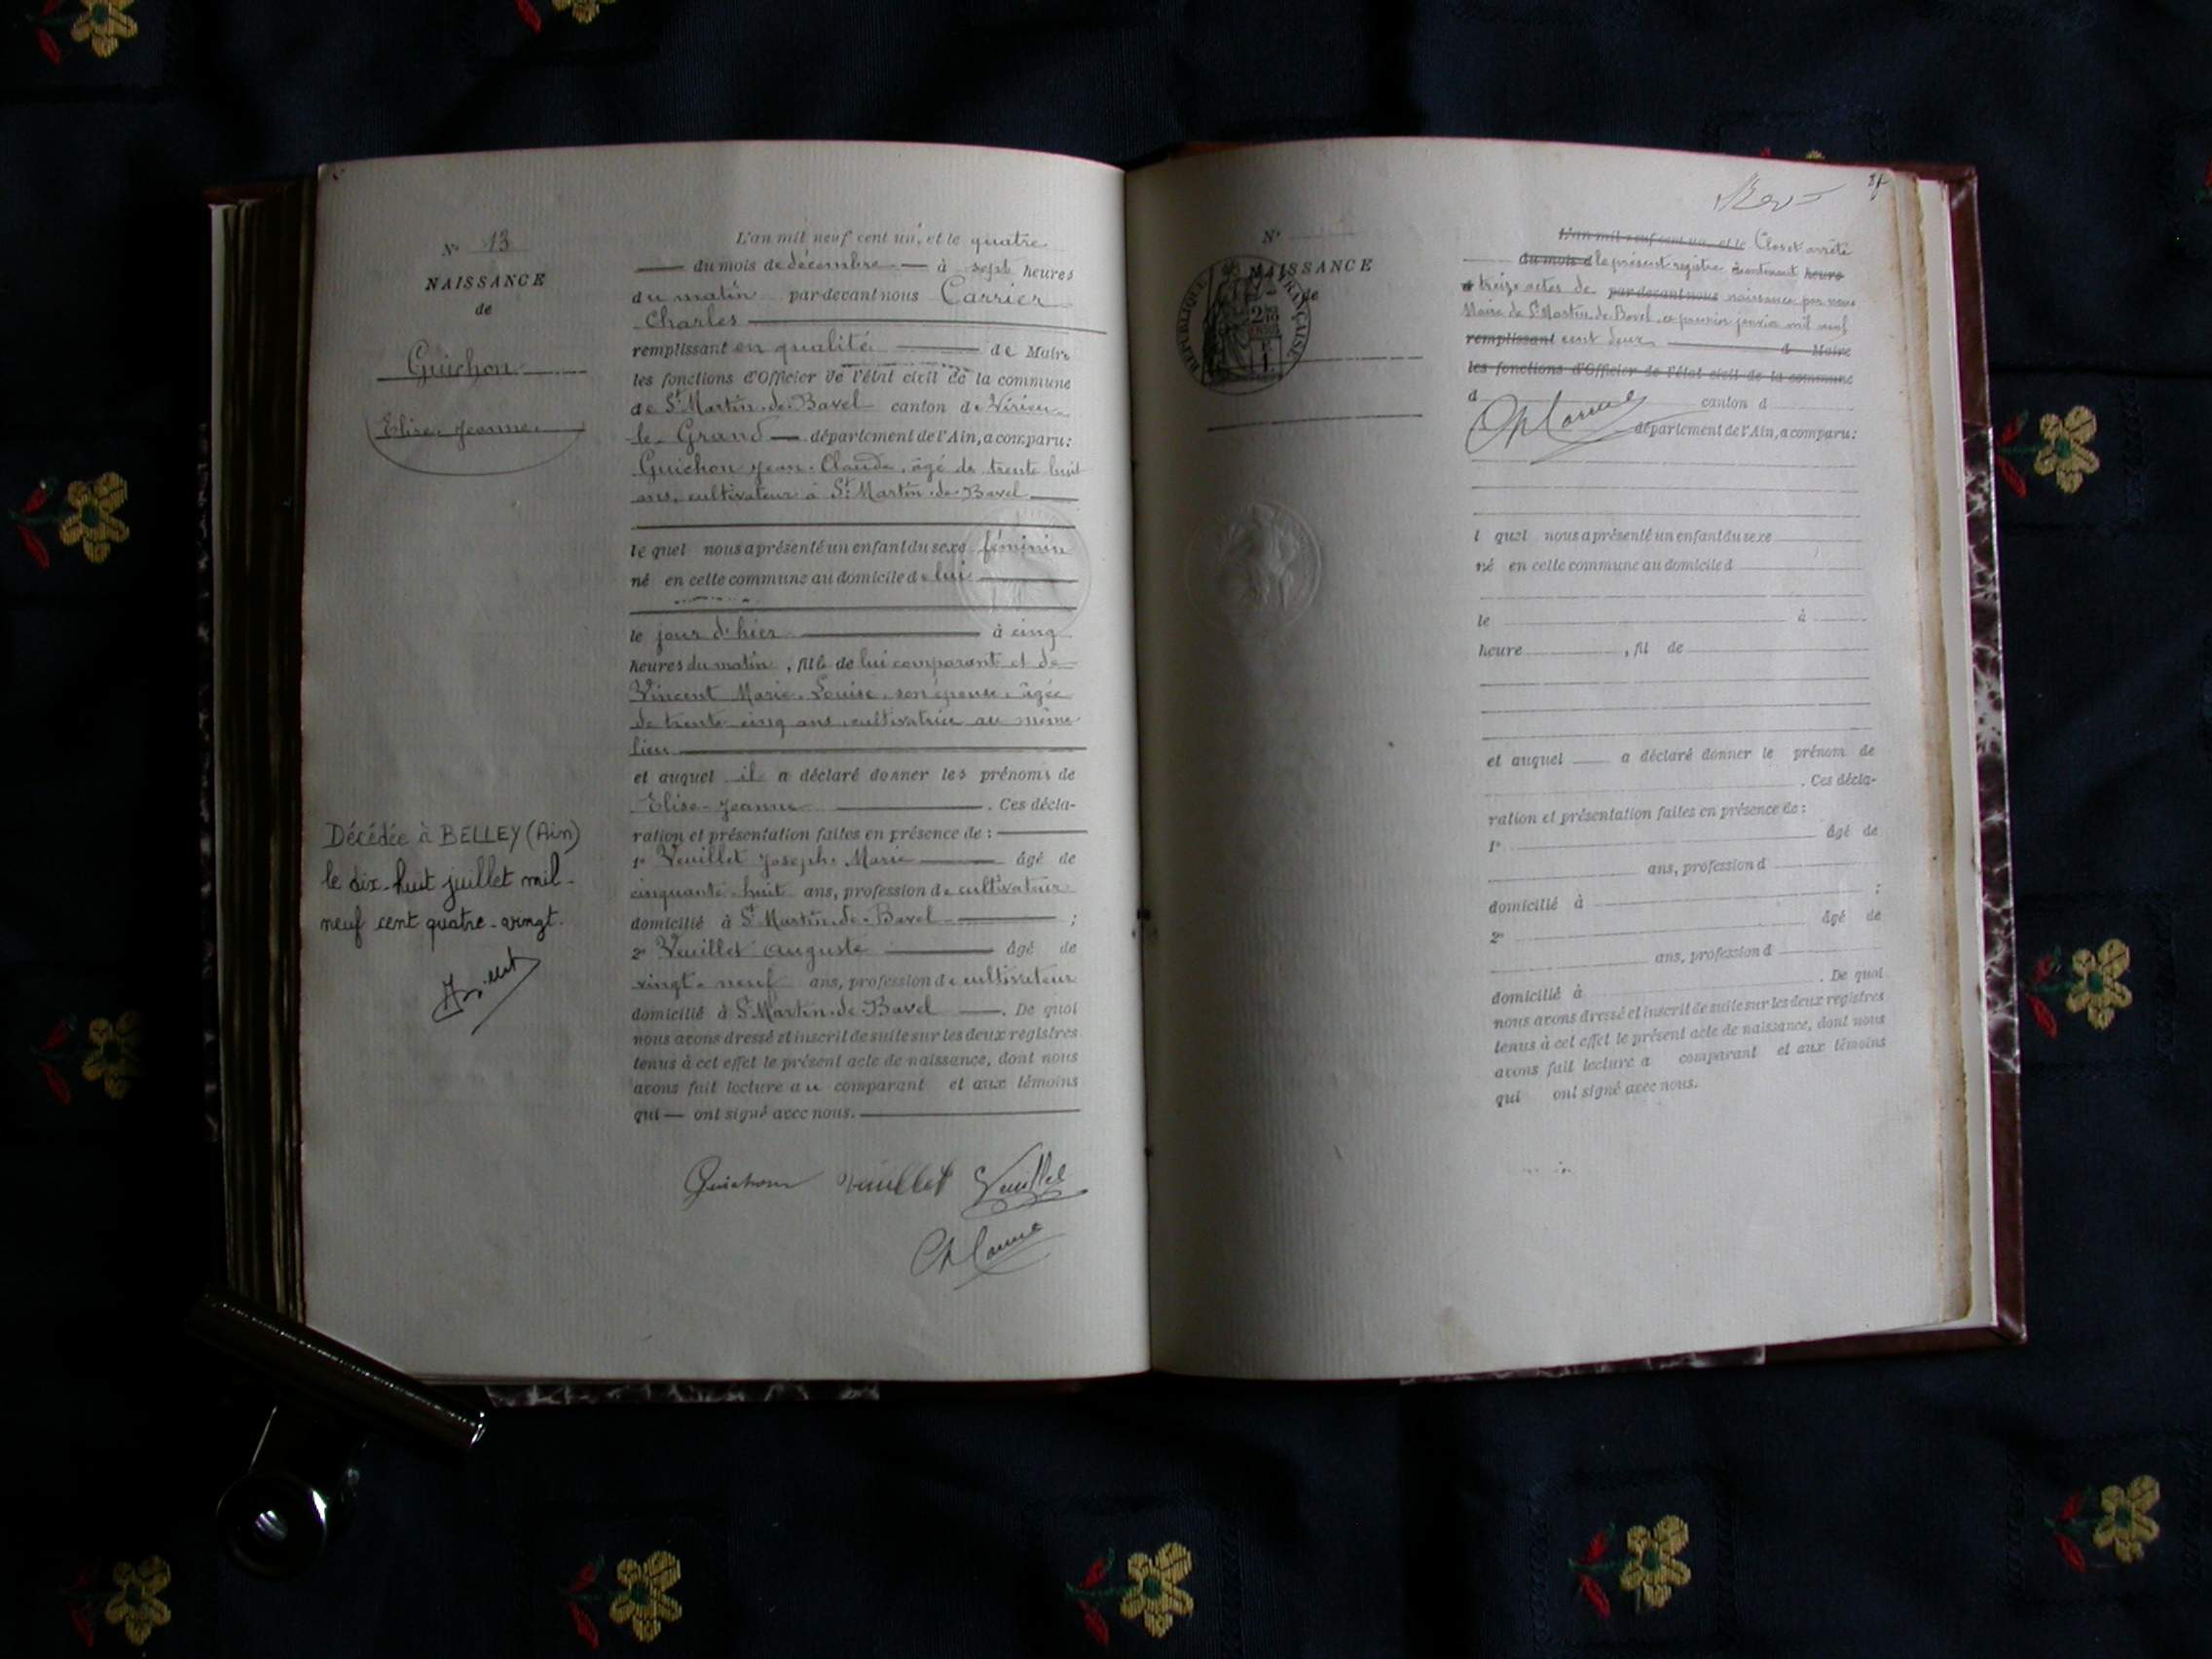 N° 13
NAISSANCE
de
Guichon
Elise-Jeanne
Décédée à BELLEY (Ain)
le dix-huit juillet mil-
neuf cent quatre-vingt.
L'an mil neuf cent un, et le quatre
du mois de décembre à sept heures
du matin par-devant nous Carrier
Charles
remplissant en qualité de Maire
les fonctions d'Officier de l'état civil de la commune
de St Martin-de-Bavel canton de Virieu-
le-Grand département de l'Ain, a comparu:
Guichon Jean-Claude, âgé de trente huit
ans, cultivateur à St Martin-de-Bavel
le quel nous a présenté un enfant du sexe féminin
né en cette commune au domicile de lui
le jour d'hier à cinq
heures du matin, fille de lui comparant et de
Vincent Marie-Louise, son épouse, âgée
de trente-cinq ans, cultivatrice au même
lieu
et auquel il a déclaré donner les prénoms de
Elise-Jeanne. Ces décla-
ration et présentation faites en présence de:
1° Veuillet Joseph-Marie âgé de
cinquante-huit ans, profession de cultivateur
domicilié à St Martin-de-Bavel;
2° Veuillet Auguste âgé de
vingt-neuf ans, profession de cultivateur
domicilié à St Martin-de-Bavel. De quoi
nous avons dressé et inscrit de suite sur les deux registres
tenus à cet effet le présent acte de naissance, dont nous
avons fait lecture au comparant et aux témoins
qui ont signé avec nous.
Guichon Veuillet Veuillet
N°
NAISSANCE
de
RÉPUBLIQUE FRANÇAISE
L'an mil neuf cent un, et le Clos et arrêté
du mois d le présent registre contenant heure
treize actes de par-devant nous naissance par nous
Maire de St Martin-de-Bavel, ce premier janvier mil neuf
remplissant cent deux d Maire
les fonctions d'Officier de l'état civil de la commune
d canton d
département de l'Ain, a comparu:
l quel nous a présenté un enfant du sexe
né en cette commune au domicile d
le à
heure, fil de
et auquel a déclaré donner le prénom de
. Ces décla-
ration et présentation faites en présence de:
1° âgé de
ans, profession d
domicilié à ;
2° âgé de
ans, profession d
domicilié à . De quoi
nous avons dressé et inscrit de suite sur les deux registres
tenus à cet effet le présent acte de naissance, dont nous
avons fait lecture a comparant et aux témoins
qui ont signé avec nous.